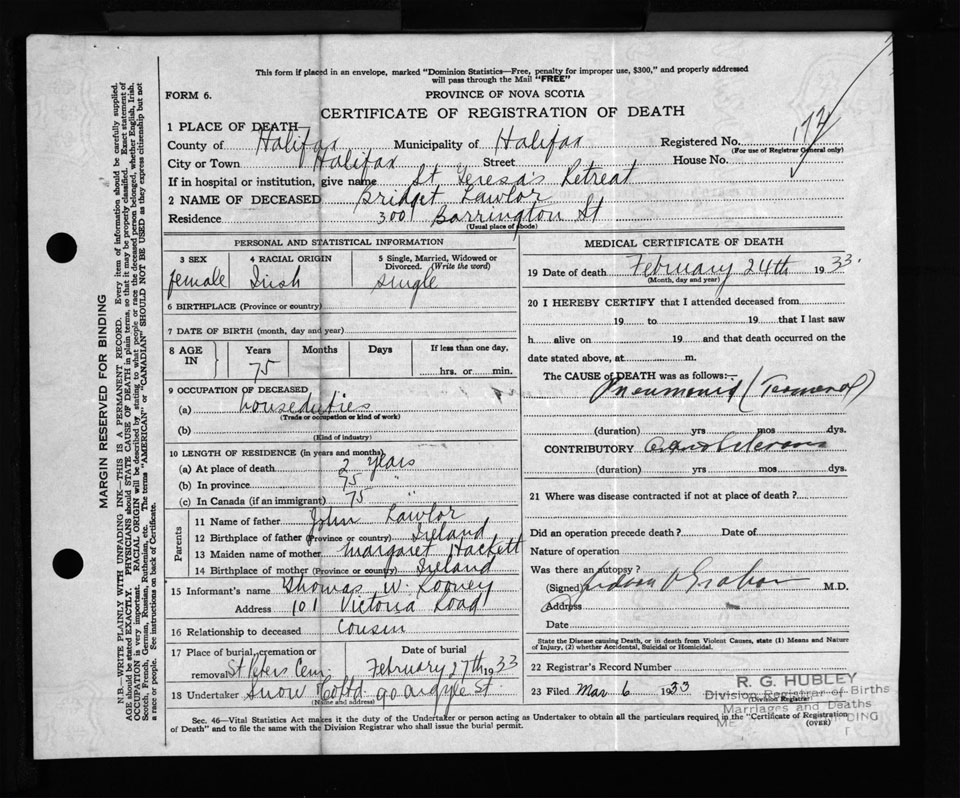 This form if placed in an envelope, marked "Dominion Statistics—Free, penalty for improper use, $300," and properly addressed
will pass through the Mail "FREE"
FORM 6.
PROVINCE OF NOVA SCOTIA
CERTIFICATE OF REGISTRATION OF DEATH
1 PLACE OF DEATH
County of Halifax Municipality of Halifax Registered No.
(For use of Registrar General only)
City or Town Halifax Street House No.
If in hospital or institution, give name St Teresa's Retreat
2 NAME OF DECEASED Bridget Lawlor
Residence 300 Barrington St
(Usual place of abode)
PERSONAL AND STATISTICAL INFORMATION
3 SEX 4 RACIAL ORIGIN 5 Single, Married, Widowed or
Divorced. (Write the word)
female Irish single
6 BIRTHPLACE (Province or country)
7 DATE OF BIRTH (month, day and year)
8 AGE IN Years Months Days If less than one day,
75 hrs. or min.
9 OCCUPATION OF DECEASED
(a) houseduties
(Trade or occupation or kind of work)
(b)
(Kind of industry)
10 LENGTH OF RESIDENCE (in years and months)
(a) At place of death 2 years
(b) In province 75 "
(c) In Canada (if an immigrant) 75 "
Parents
11 Name of father John Lawlor
12 Birthplace of father (Province or country) Ireland
13 Maiden name of mother Margaret Hackett
14 Birthplace of mother (Province or country) Ireland
15 Informant's name Thomas W. Looney
Address 101 Victoria Road
16 Relationship to deceased Cousin
17 Place of burial, cremation or Date of burial
removal St Peters Cem. February 27th 1933
18 Undertaker Snow & Co Ltd. 90 Argyle St.
(Name and address)
MEDICAL CERTIFICATE OF DEATH
19 Date of death February 24th 1933.
(Month, day and year)
20 I HEREBY CERTIFY that I attended deceased from
19 to 19 that I last saw
h alive on 19 and that death occurred on the
date stated above, at m.
The CAUSE of DEATH was as follows:—
Pneumonia (Terminal)
(duration) yrs mos dys.
CONTRIBUTORY
(duration) yrs mos dys.
21 Where was disease contracted if not at place of death?
Did an operation precede death? Date of
Nature of operation
Was there an autopsy?
(Signed) M.D.
Address
Date
State the Disease causing Death, or in death from Violent Causes, state (1) Means and Nature
of Injury, (2) whether Accidental, Suicidal or Homicidal.
22 Registrar's Record Number
23 Filed Mar 6 1933
(Division Registrar)
R. G. HUBLEY
Division Registrar of Births
Marriages and Deaths
(OVER)
Sec. 46—Vital Statistics Act makes it the duty of the Undertaker or person acting as Undertaker to obtain all the particulars required in the "Certificate of Registration
of Death" and to file the same with the Division Registrar who shall issue the burial permit.
MARGIN RESERVED FOR BINDING
N.B.—WRITE PLAINLY WITH UNFADING INK—THIS IS A PERMANENT RECORD. Every item of information should be carefully supplied.
AGE should be stated EXACTLY. PHYSICIANS should STATE CAUSE OF DEATH in plain terms, so that it may be properly classified. Exact statement of
OCCUPATION is very important. RACIAL ORIGIN will be described by stating to what people or race the deceased person belonged, whether English, Irish,
Scotch, French, German, Russian, Ruthenian, etc. The terms "AMERICAN" or "CANADIAN" SHOULD NOT BE USED as they express citizenship but not
a race or people. See instructions on back of Certificate.